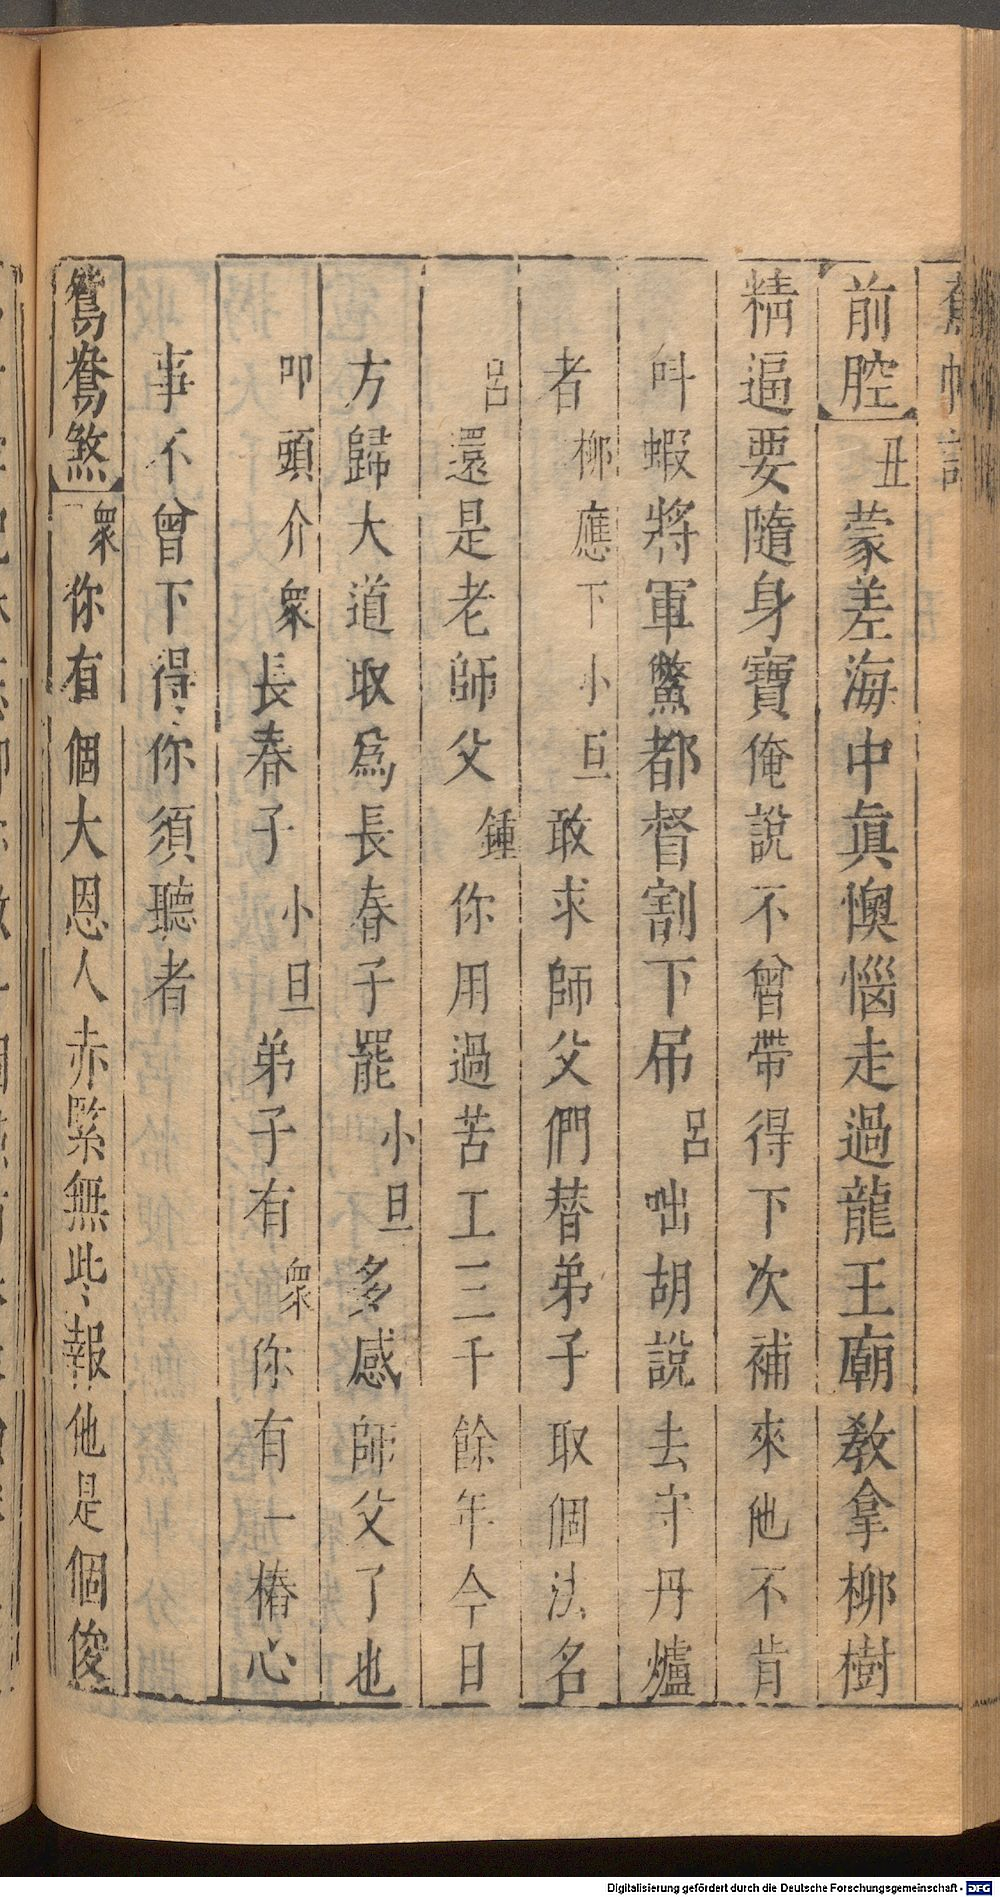 蕉帕記
前腔丑蒙差海中眞懊惱走過龍王廟敎拿柳樹
精逼要隨身寶俺說不曾帶得下次補來他不肯
呌蝦將軍鱉都督割下吊呂咄胡說去守丹爐
者柳應下小旦敢求師父們替弟子取個法名
呂還是老師父鍾你用過苦工三千餘年今日
方歸大道取爲長春子罷小旦多感師父了也
叩頭介衆長春子小旦弟子有衆你有一樁心
事不曾下得你須聽者
鴛鴦煞衆你有個大恩人赤緊無些報他是個俊
Digitalisierung gefördert durch die Deutsche Forschungsgemeinschaft - DFG